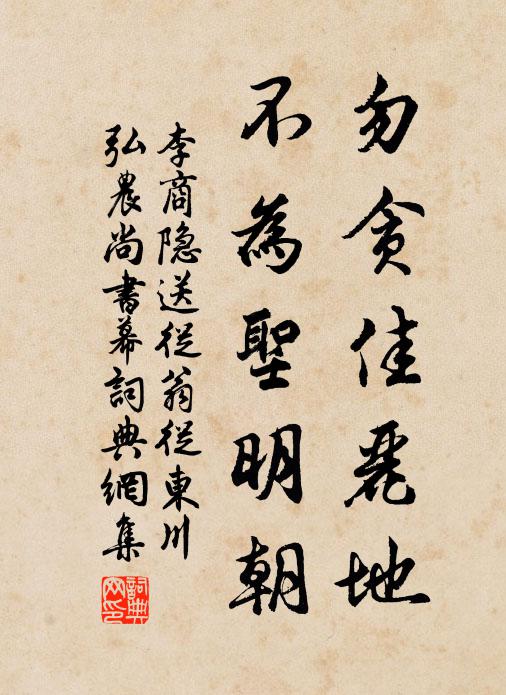 勿贪佳麗地
不為聖明朝
李商隐送從翁從東川
弘農尚書幕詞典網集
詞典网印